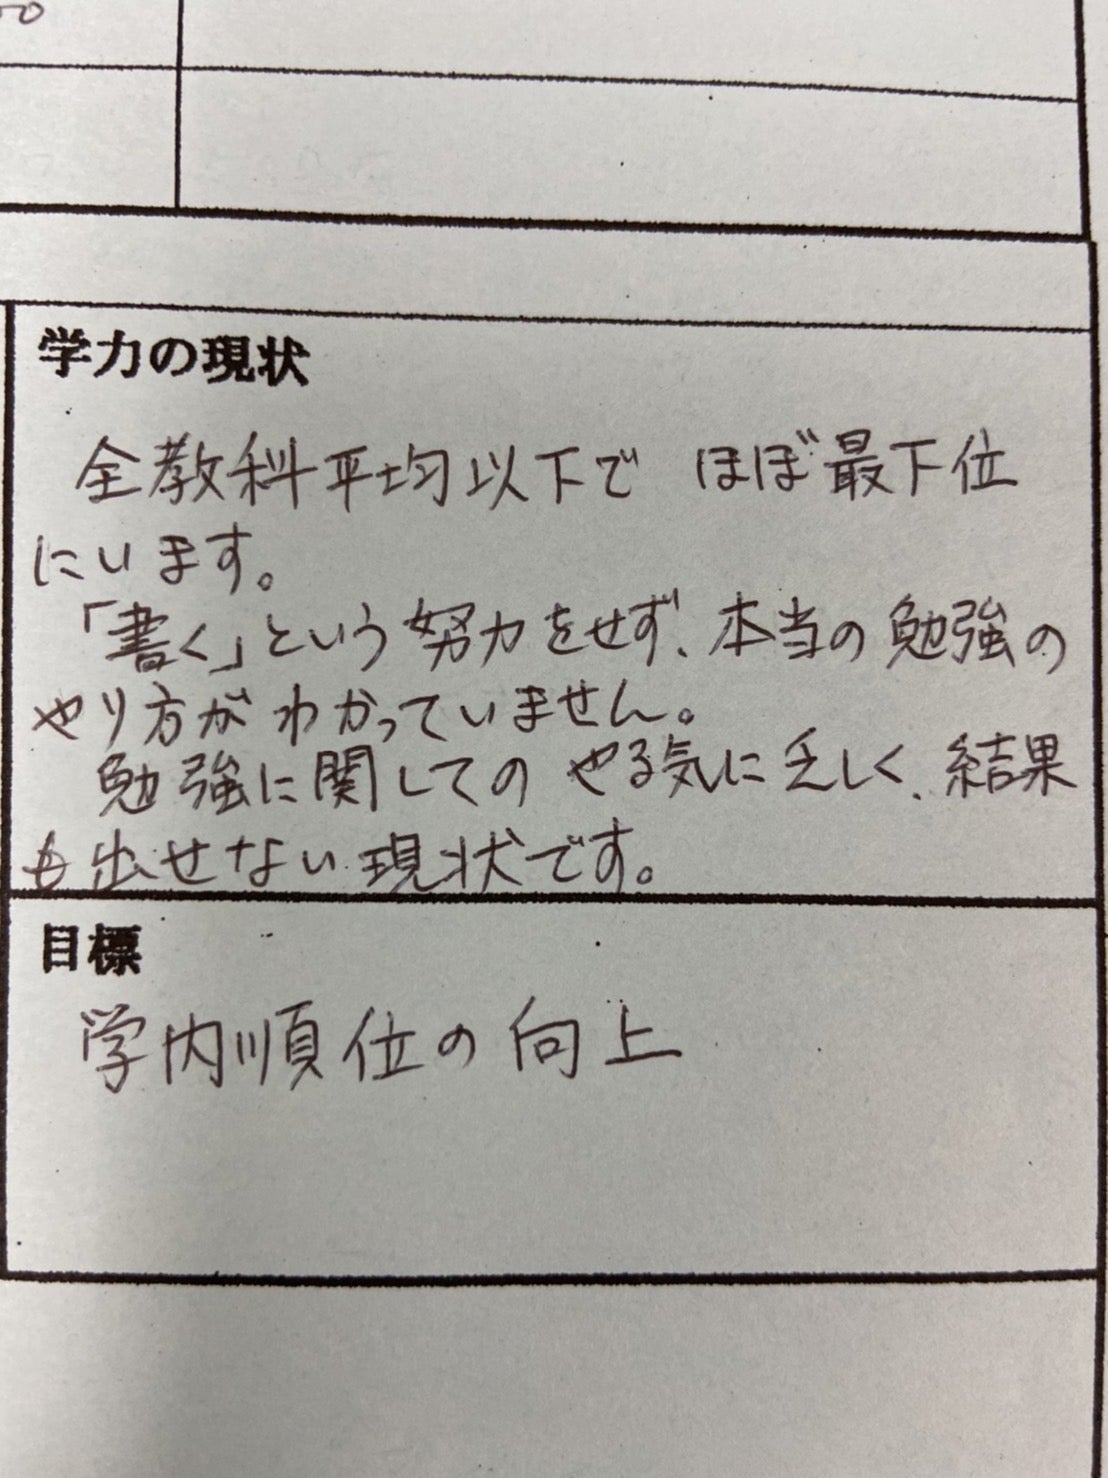 学力の現状
全教科平均以下で ほぼ最下位
にいます。
「書く」という努力をせず、本当の勉強の
やり方がわかっていません。
勉強に関してのやる気に乏しく、結果
も出せない現状です。
目標
学内順位の向上